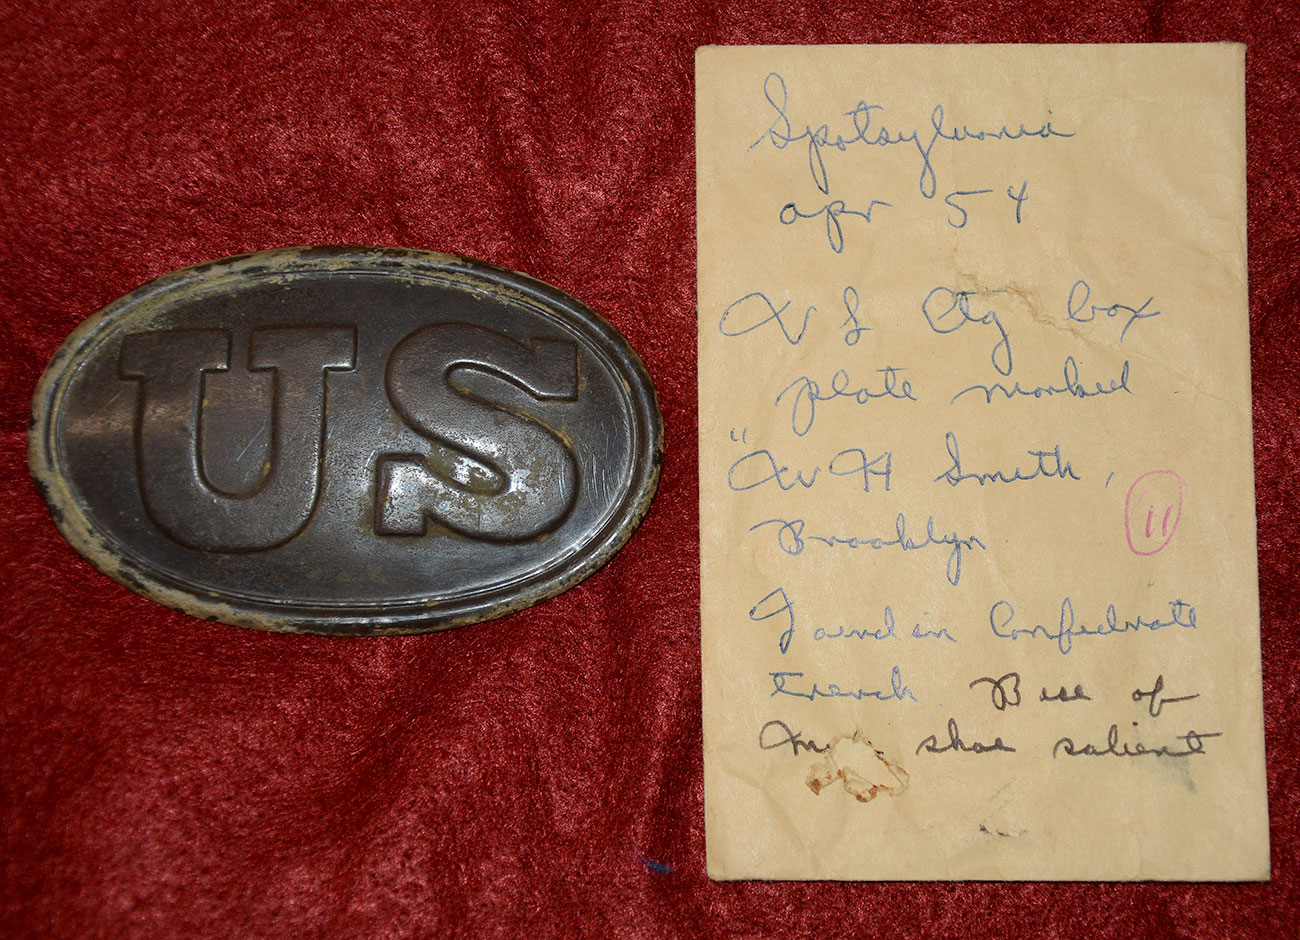 US
Spotsylvania
apr 54
U S Ctg box
plate marked
"W H Smith,
Brooklyn
11
Found in Confedrate
trench. Base of
shoe salient